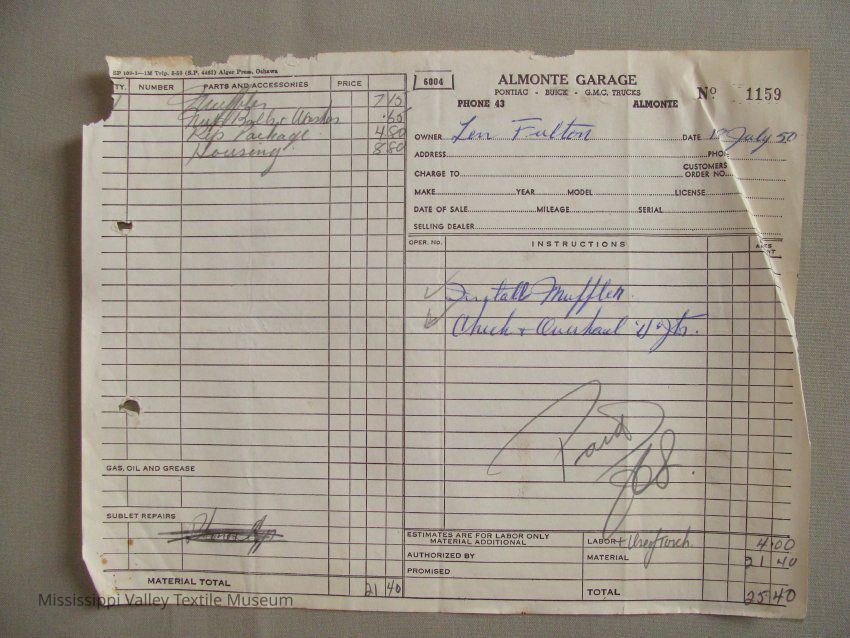 SP 109-1—1M Trip. 5-50 (S.P. 4482) Alger Press, Oshawa
TY. NUMBER PARTS AND ACCESSORIES PRICE
Muffler 7 15
Nuts Bolts & Washer .65
Rep Package 4 80
Housing 8 80
GAS, OIL AND GREASE
SUBLET REPAIRS
MATERIAL TOTAL 21 40
6004
ALMONTE GARAGE
PONTIAC - BUICK - G.M.C. TRUCKS
PHONE 43 ALMONTE
No 1159
OWNER Len Fulton DATE July 50
ADDRESS PHONE
CHARGE TO CUSTOMERS ORDER NO.
MAKE YEAR MODEL LICENSE
DATE OF SALE MILEAGE SERIAL
SELLING DEALER
OPER. NO. INSTRUCTIONS
Install Muffler.
Check & Overhaul "U" Jts.
Paid
ESTIMATES ARE FOR LABOR ONLY
MATERIAL ADDITIONAL
AUTHORIZED BY
PROMISED
LABOR 4.00
MATERIAL 21 40
TOTAL 25 40
Mississippi Valley Textile Museum